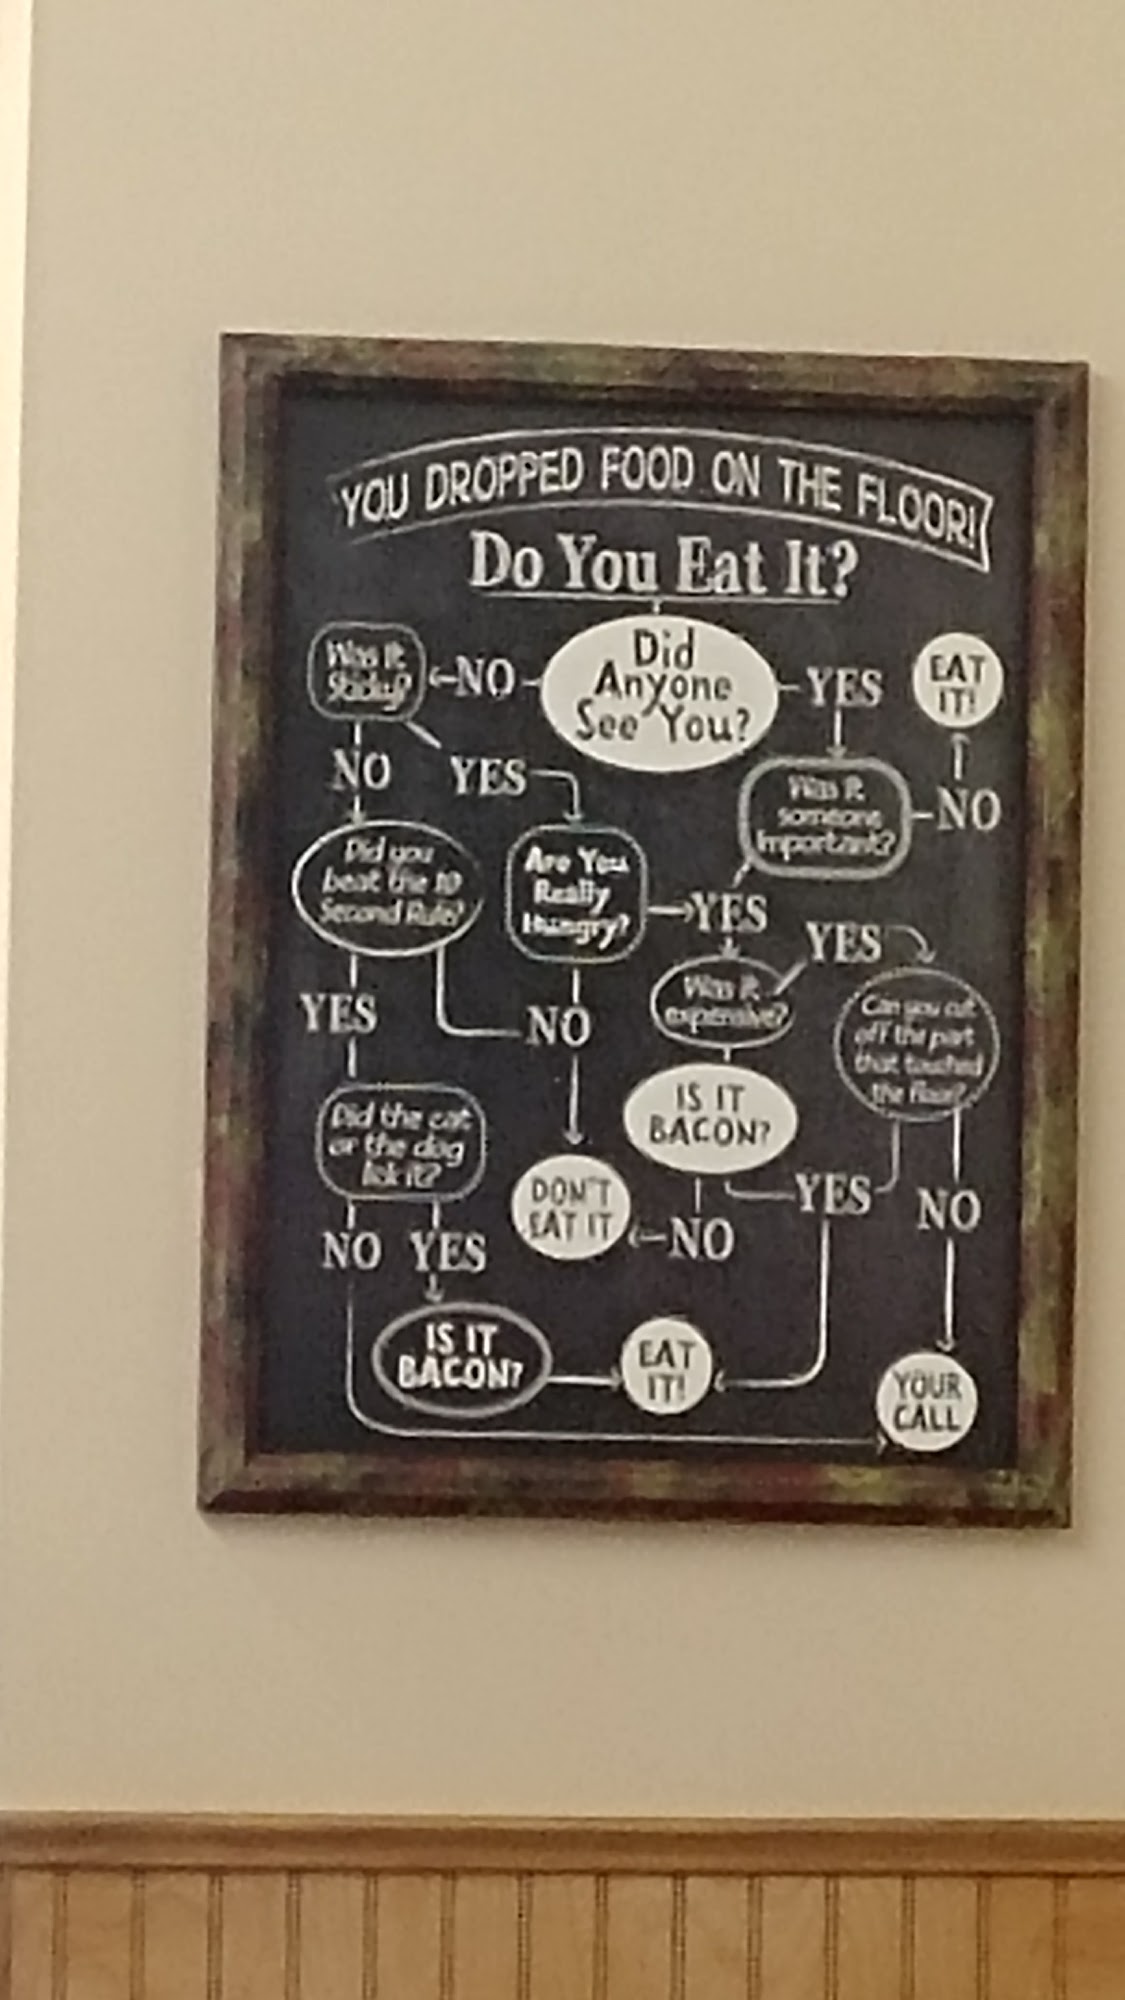 YOU DROPPED FOOD ON THE FLOOR!
Do You Eat It?
Did
Anyone
See You?
NO
YES
Was it
Sticky?
EAT
IT!
NO
YES
Was it
someone
important?
NO
Did you
beat the 10
Second Rule?
Are You
Really
Hungry?
YES
YES
Was it
expensive?
Can you cut
off the part
that touched
the floor?
YES
NO
IS IT
BACON?
Did the cat
or the dog
lick it?
DON'T
EAT IT
NO
YES
NO
NO
YES
IS IT
BACON?
EAT
IT!
YOUR
CALL